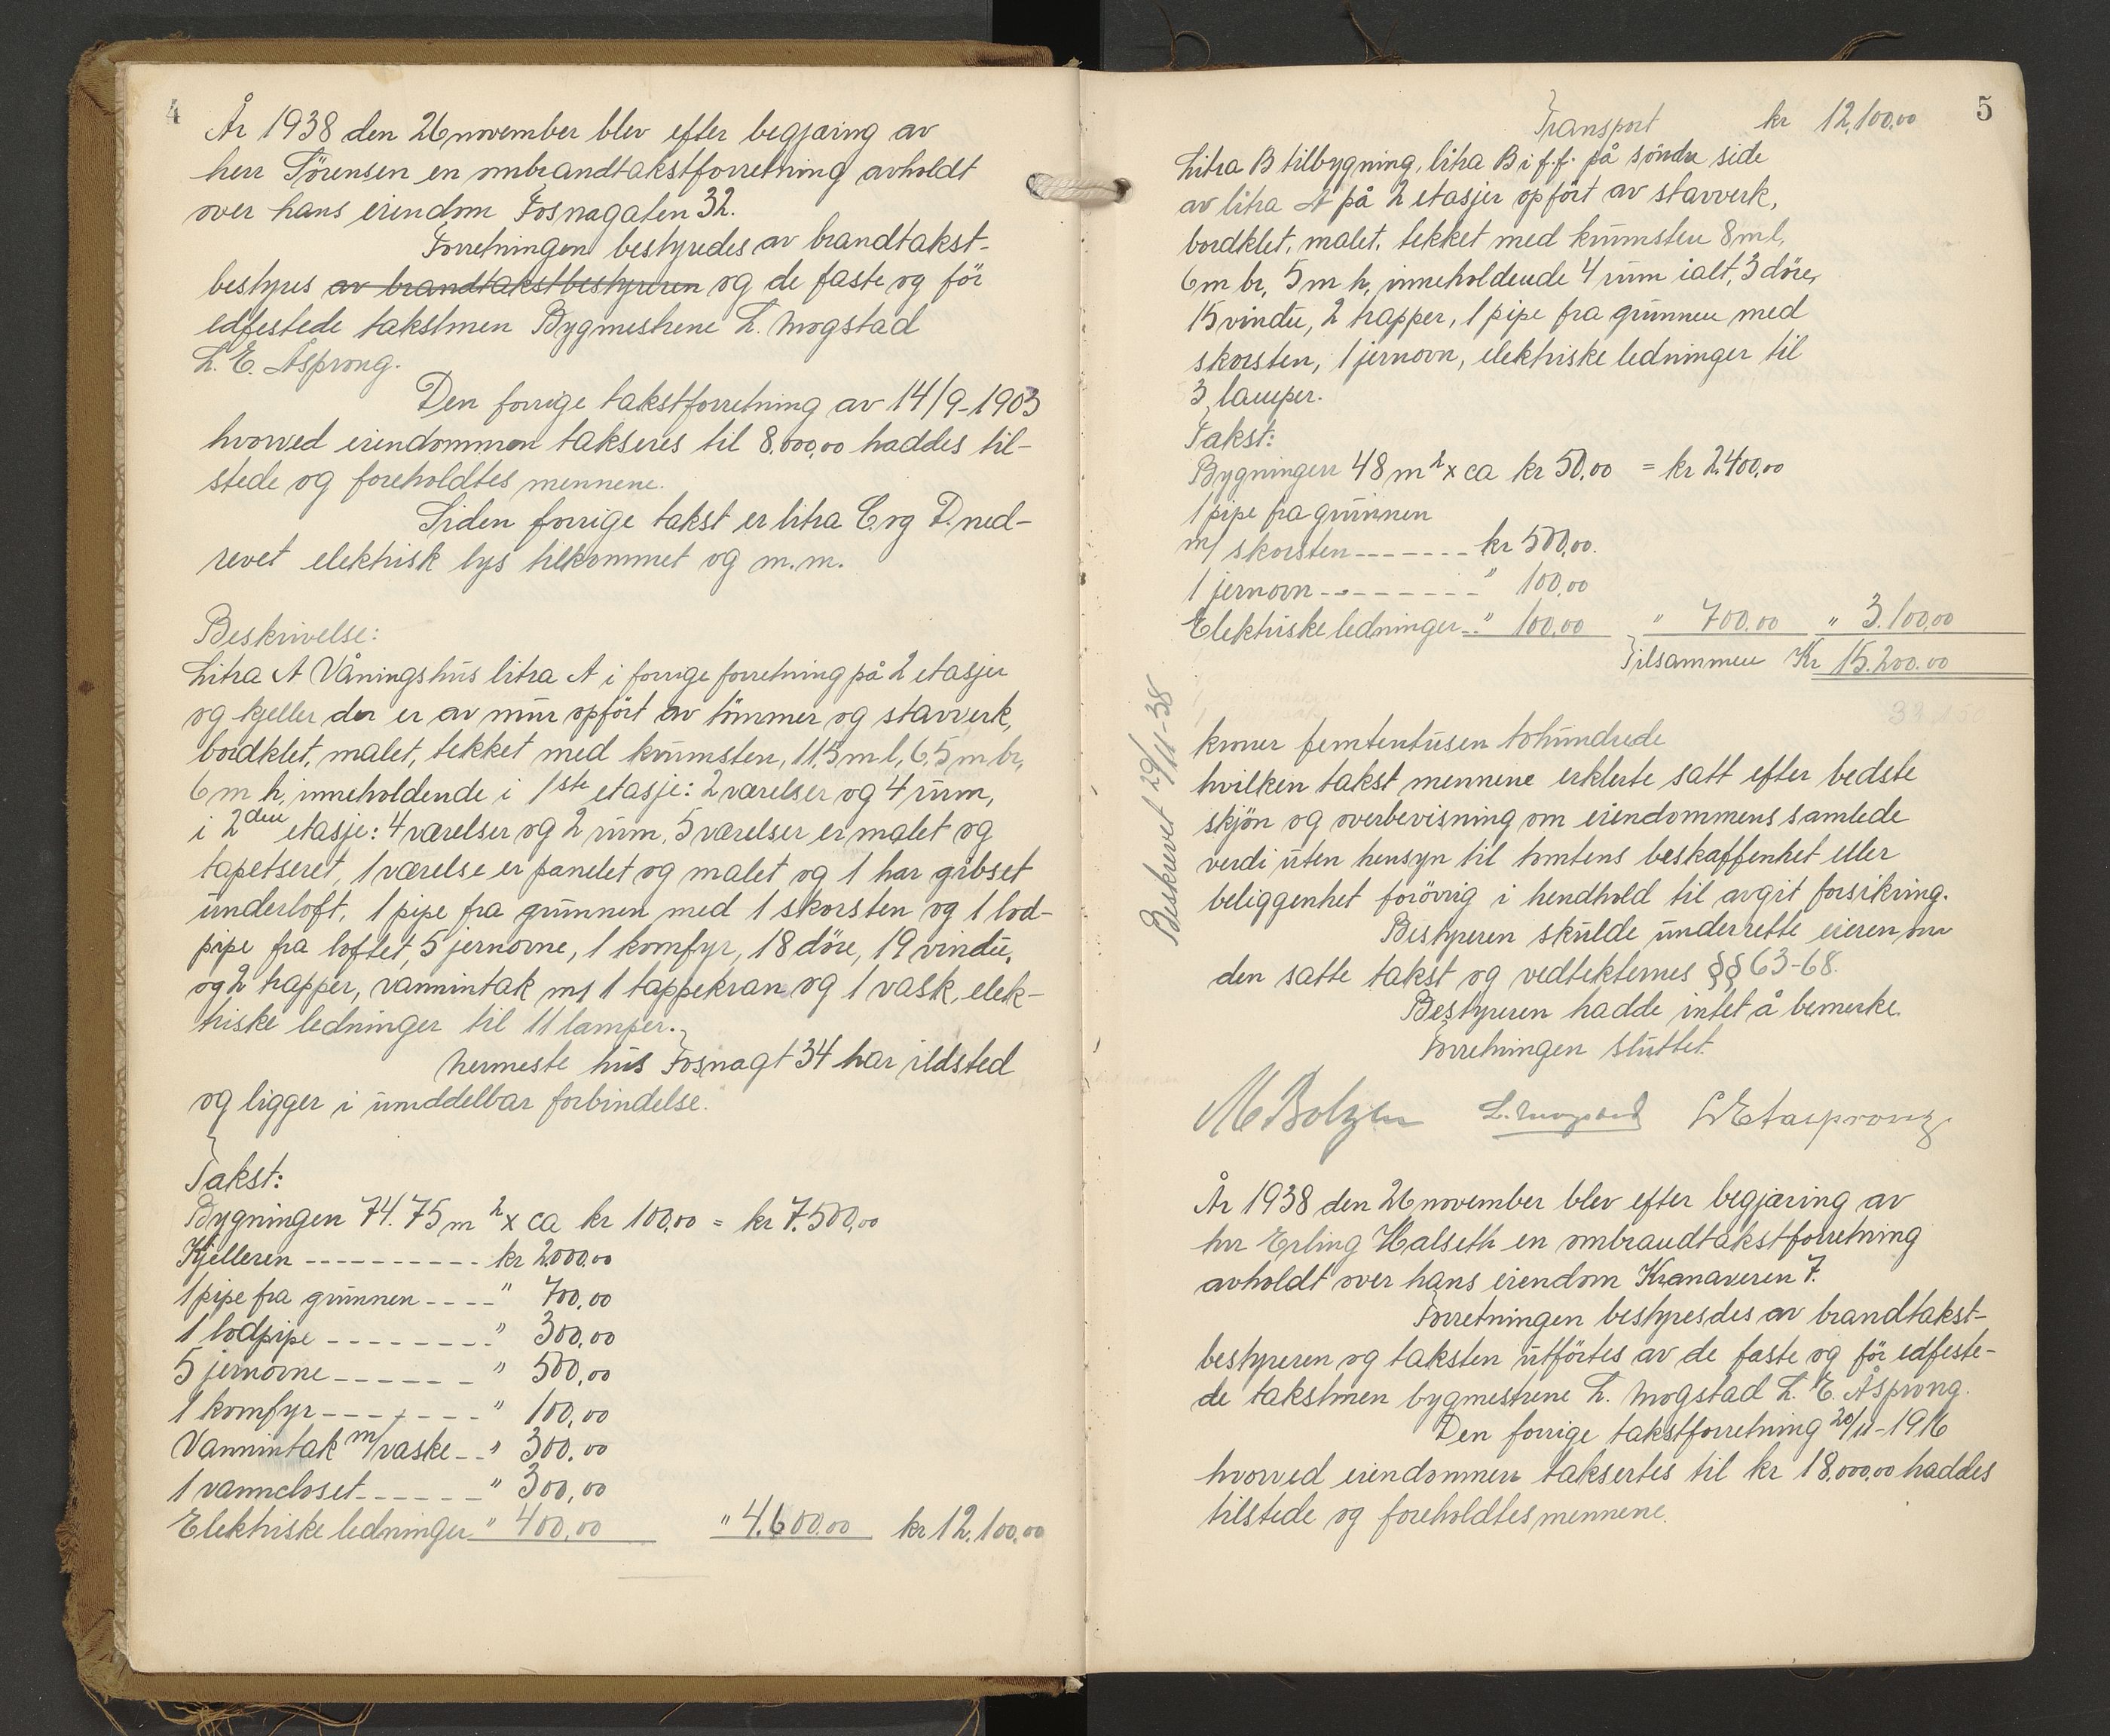 4
År 1938 den 26 november blev efter begjæring av
herr Sörensen en ombrandtakstforretning avholdt
over hans eiendom Fosnagaten 32.
Forretningen bestyredes av brandtakst-
bestyres av brandtakstbestyreren og de faste og för
edfestede takstmen Bygmestrene L. Mogstad
L. E. Åsprong.
Den forrige takstforretning av 14/9-1903
hvorved eiendommen takseres til 8.000,00 haddes til-
stede og foreholdtes mennene.
Siden forrige takst er litra C. og D. ned-
revet elektrisk lys tilkommet og m.m.
Beskrivelse:
Litra A Våningshus litra A i forrige forretning på 2 etasjer
og kjeller der er av mur opfört av tömmer og stavverk,
bordklet, malet, tekket med krumsten, 11,5 m l, 6,5 m br,
6 m h, inneholdende i 1ste etasje: 2 værelser og 4 rum,
i 2den etasje: 4 værelser og 2 rum, 5 værelser er malet og
tapetseret, 1 værelse er panelet og malet og 1 har gibset
underloft, 1 pipe fra grunnen med 1 skorsten og 1 lod-
pipe fra loftet, 5 jernovne, 1 komfyr, 18 döre, 19 vindu,
og 2 trapper, vannintak m/ 1 tappekran og 1 vask, elek-
triske ledninger til 11 lamper.
Nermeste hus Fosnagt 34 har ildsted
og ligger i umddelbar forbindelse.
Takst:
Bygningen 74.75 m² x ca kr 100,00 = kr 7.500,00
Kjelleren ---------- kr 2000,00
1 pipe fra grunnen ---- " 700,00
1 lodpipe -------- " 300,00
5 jernovne ------ " 500,00
1 komfyr -------- " 100,00
Vannintak m/vaske -- " 300,00
1 vanncloset ------ " 300,00
Elektriske ledninger " 400,00 " 4.600,00 kr 12.100,00
5
Transport kr 12,100,00
Litra B tilbygning, litra B i f.f. på söndre side
av litra A på 2 etasjer opfört av stavverk,
bordklet, malet, tekket med krumsten 8 m l,
6 m br, 5 m h, inneholdende 4 rum ialt, 3 döre,
15 vindu, 2 trapper, 1 pipe fra grunnen med
skorsten, 1 jernovn, elektriske ledninger til
3 lamper.
Takst:
Bygningen 48 m² x ca kr 50,00 = kr 2.400,00
1 pipe fra grunnen
m/ skorsten ------- kr 500,00.
1 jernovn --------- " 100,00
Elektriske ledninger -- " 100,00 " 700,00 " 3.100,00
Tilsammen Kr 15.200.00
Beskrevet 29/11-38
kroner femtentusen tohundrede
hvilken takst mennene erklerte satt efter bedste
skjön og overbevisning om eiendommens samlede
verdi uten hensyn til tomtens beskaffenhet eller
beliggenhet forövrig i hendhold til avgit forsikring.
Bestyreren skulde underrette eieren om
den satte takst og vedtekternes §§ 63-68.
Bestyreren hadde intet å bemerke.
Forretningen sluttet.
M Bolzen L. Mogstad L E Aasprong
År 1938 den 26 november blev efter begjæring av
hr Erling Halseth en ombrandtakstforretning
avholdt over hans eiendom Kranaveren 7.
Forretningen bestyresdes av brandtakst-
bestyreren og taksten utförtes av de faste og för edfeste-
de takstmen bygmestrene L. Mogstad L. E. Åsprong.
Den forrige takstforretning 20/11-1916
hvorved eiendommen taksertes til kr 18.000,00 haddes
tilstede og foreholdtes mennene.